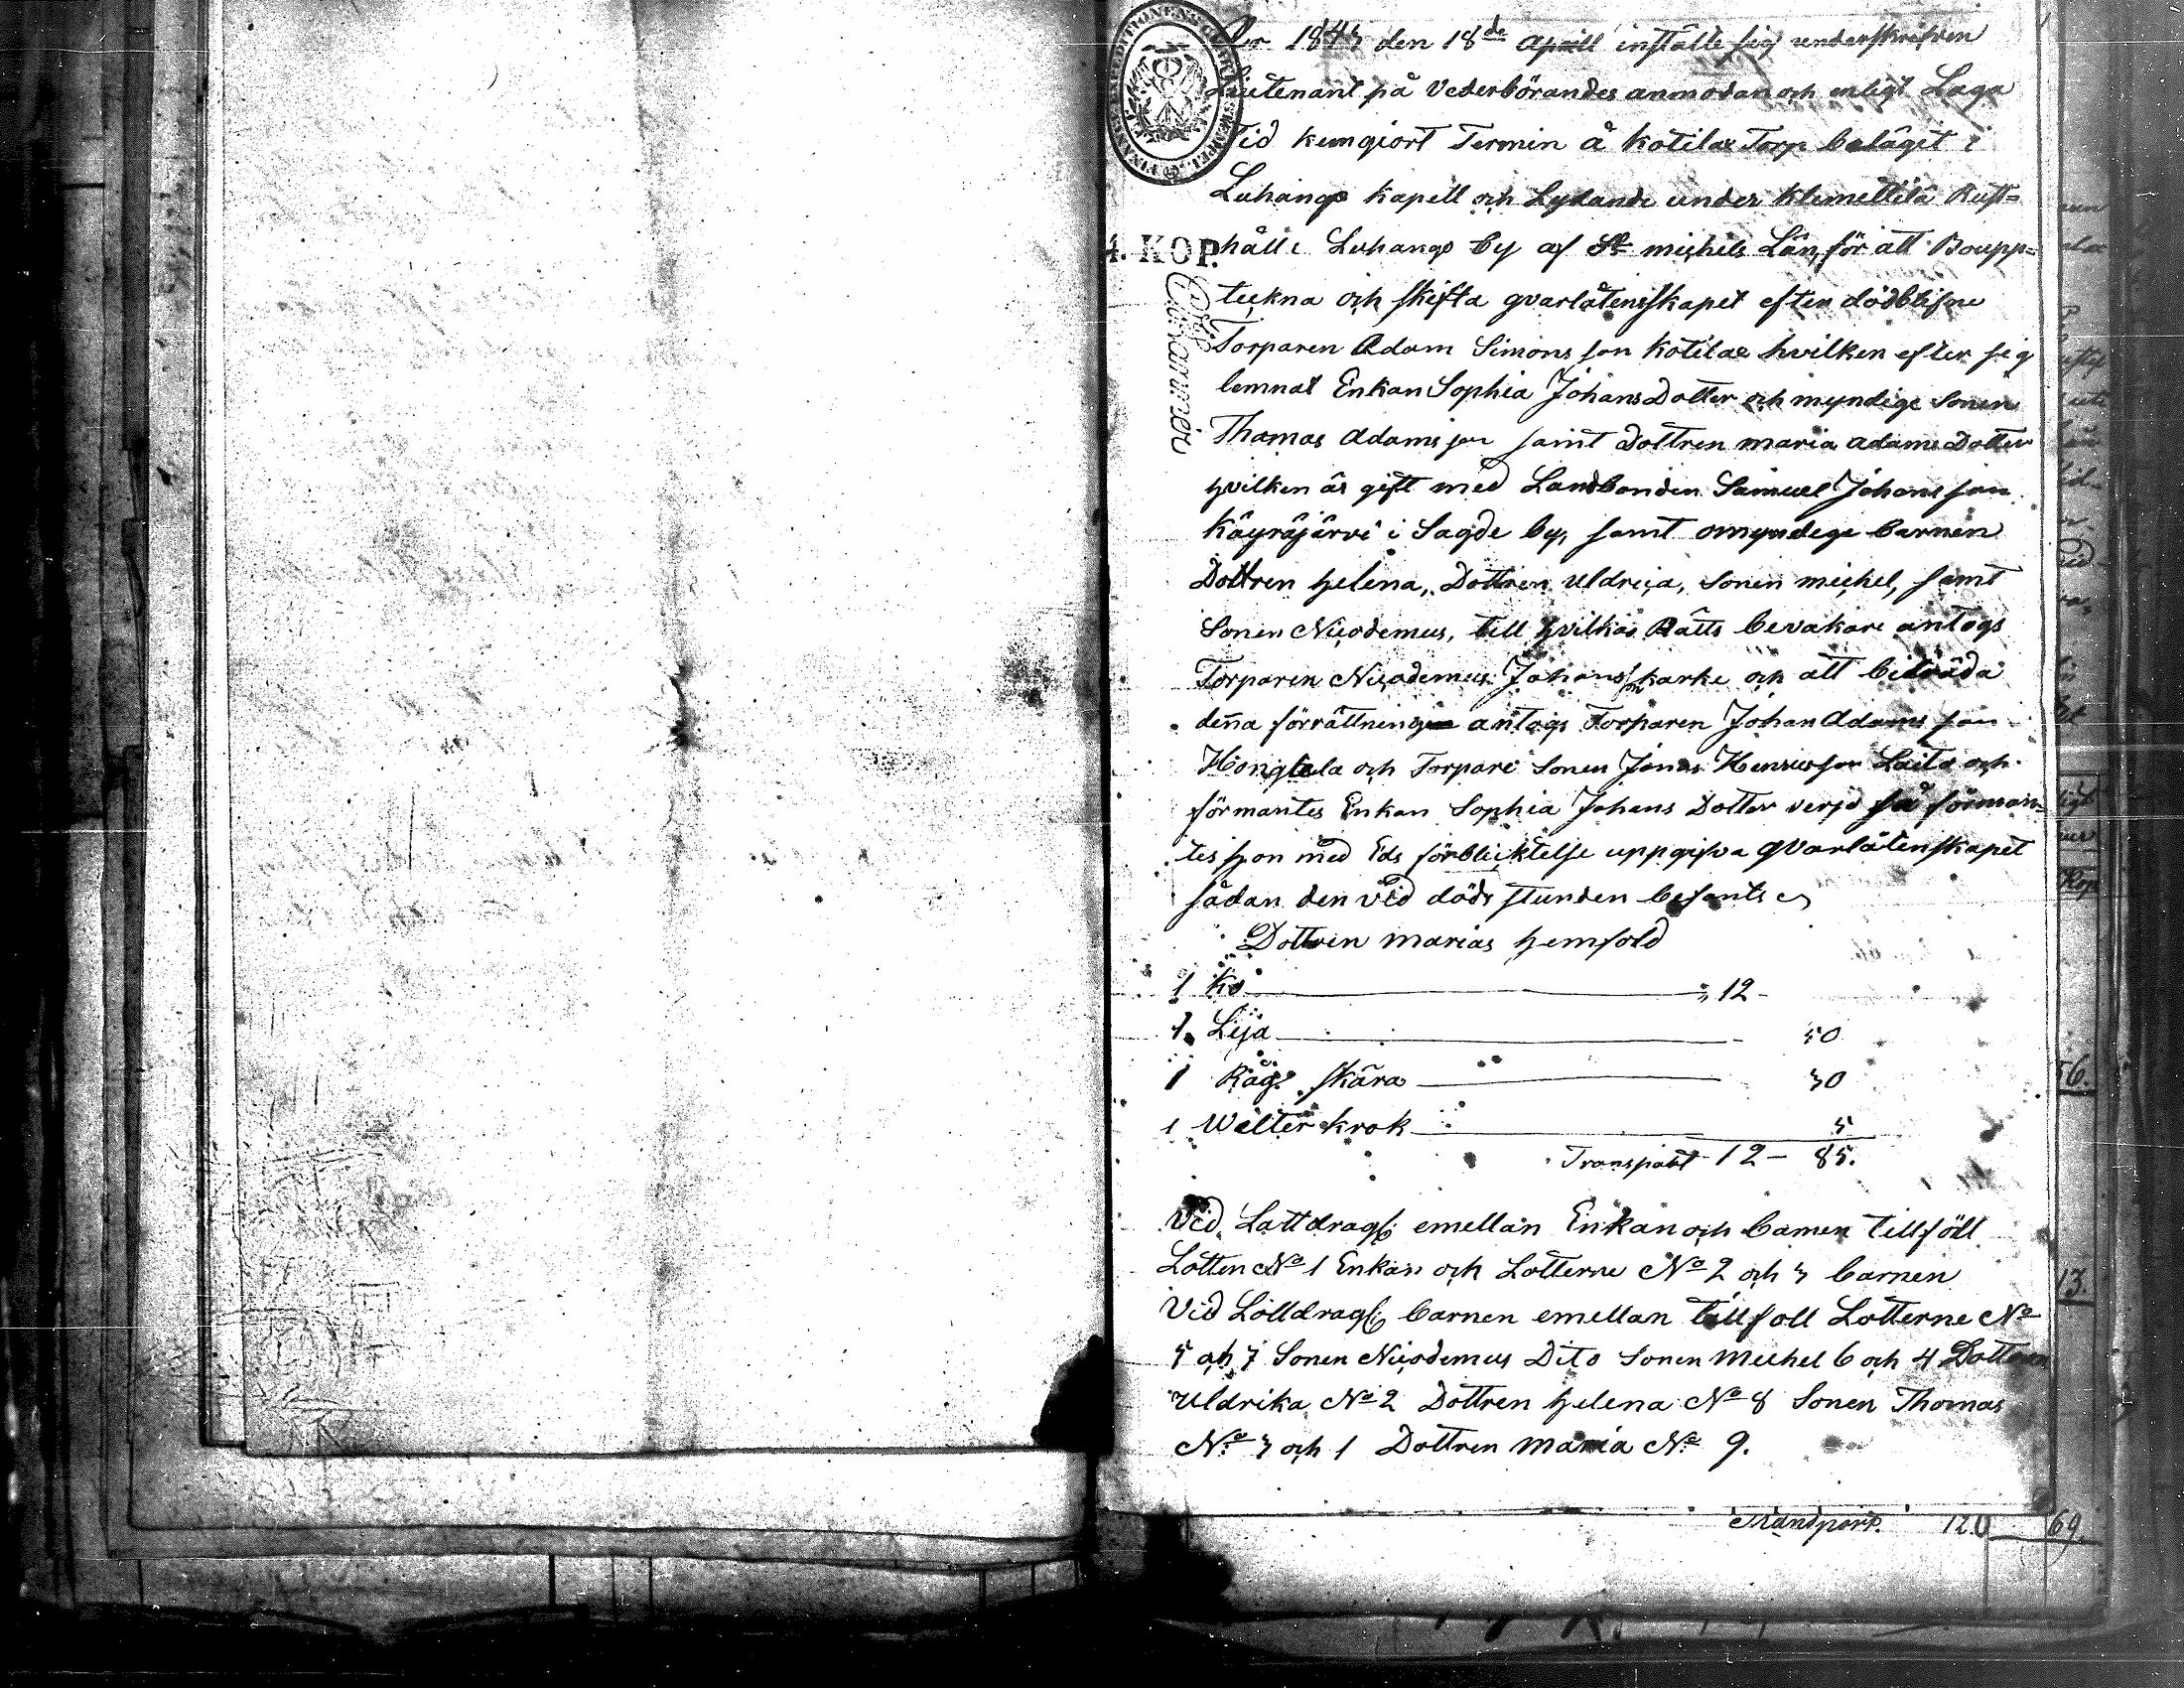 År 1843 den 18de Aprill inställte sig underskrifven
Lieutenant på Vederbörandes anmodan och enligt Laga
Tid kungiort Termin å Kotilax Torp beläget i
Luhango Kapell och Lydande under Klemettilä Rust-
håll i Luhango by af St Michels Län, för att Boupp-
4. KOP.
teckna och skifta qvarlåtenskapet efter dödblifne
Torparen Adam Simons son Kotilax hvilken efter sig
lemnat Enkan Sophia Johans Dotter och myndige Sonen
Thomas Adams son samt Dottren Maria Adams Dotter
hvilken är gift med Landbonden Samuel Johans son
Käyräjärvi i Sagde by, samt omyndege barnen
Dottren Helena, Dottren Uldrica, Sonen Michel, samt
Sonen Nicodemus, till hvilkas Rätts bevakare antogs
Torparen Nicodemus Johansson karke och att biträda
denna förrättning antogs Torparen Johan Adams son
och Torpare Sonen Jonas Henricsson Laita och
förmantes Enkan Sophia Johans Dotter förman-
tes hon med Eds förplicktelse uppgifva qvarlåtenskapet
sådan den vid döds stunden befants
Dottren Marias hemfold
1 Ko 12 -
1 Lija 50
1 Råg skära 30
1 Wälter krok 5
Transport 12 - 85.
Vid Lattdrag emellan Enkan och barnen tillföll
Lotten No 1 Enkan och Lotterne No 2 och 3 barnen
Vid Lottdrag barnen emellan tillfoll Lotterne No
5 och 7 Sonen Nicodemus Dito Sonen Michel 6 och 4 Dottren
Uldrika No 2 Dottren Helena No 8 Sonen Thomas
No 3 och 1 Dottren Maria No 9.
Transport. 120 69